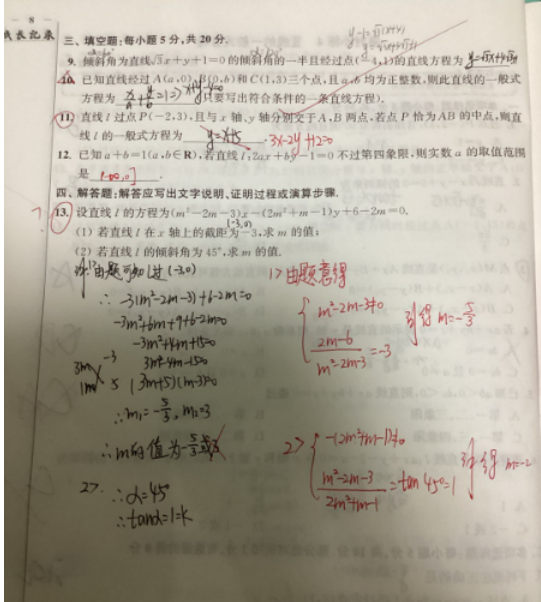 — 8 —
成长记录
三、填空题:每小题5分,共20分.
9. 倾斜角为直线√3x+y+1=0的倾斜角的一半且经过点(-4,1)的直线方程为
10. 已知直线经过A(a,0),B(0,b)和C(1,3)三个点,且a,b均为正整数,则此直线的一般式
方程为 (只要写出符合条件的一条直线方程).
11. 直线l过点P(-2,3),且与x轴、y轴分别交于A,B两点,若点P恰为AB的中点,则直
线l的一般式方程为 y=x+5 . 3x-2y+12=0
12. 已知a+b=1(a,b∈R),若直线l:2ax+by-1=0不过第四象限,则实数a的取值范围
是 (-∞,0] .
四、解答题:解答应写出文字说明、证明过程或演算步骤.
? 13. 设直线l的方程为(m²-2m-3)x-(2m²+m-1)y+6-2m=0.
(-3,0)
(1) 若直线l在x轴上的截距为-3,求m的值;
(2) 若直线l的倾斜角为45°,求m的值.
1> 由题可知 l过(-3,0)
∴ -3(m²-2m-3)+6-2m=0
-3m²+6m+9+6-2m=0
-3m²+4m+15=0
3m²-4m-15=0
3m -3
1m 5 (3m+5)(m-3)=0
∴m₁=-5/3, m₂=3
∴m的值为-5/3或3
2>. ∵α=45°
∴tanα=1=k
1> 由题意得
m²-2m-3≠0
(2m-6)/(m²-2m-3)=-3
解得 m=-5/3
2> -(2m²+m-1)≠0
(m²-2m-3)/(2m²+m-1)=tan 45°=1
解得 m=-2